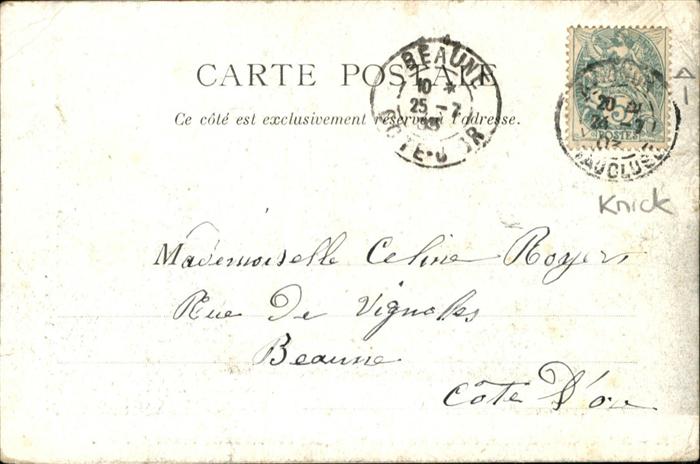 CARTE POSTALE
Ce côté est exclusivement réservé à l'adresse.
BEAUNE
10 *
25 - 7
03
COTE-D'OR
5
POSTES
20
24 - 7
03
VAUCLUSE
Knick
Mademoiselle Celine Royer
Rue De Vignoles
Beaune
Côte D'or